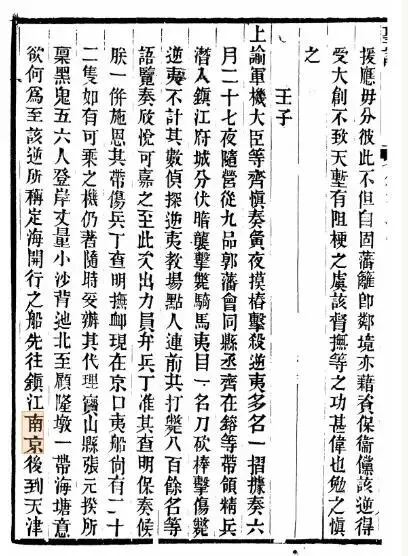 援應毋分彼此不但自固藩籬卽鄰境亦藉資保衞儻該逆得
受大創不致天塹有阻梗之虞該督撫等之功甚偉也勉之慎
之
壬子
上諭軍機大臣等齊慎奏黃夜摸樁擊殺逆夷多名一摺據奏六
月二十七夜隨營從九品郭藩會同縣丞齊在鎔等帶領精兵
潛入鎮江府城分伏暗襲擊斃騎馬夷目一名刀砍棒擊傷斃
逆夷不計其數偵探逆夷教場點人連前共打斃八百餘名等
語覽奏欣悅可嘉之至此次出力員弁兵丁准其查明保奏候
朕一併施恩其帶傷兵丁查明撫卹現在京口夷船尙有二十
二隻如有可乘之機仍著隨時妥辦其代理寶山縣張元揆所
稟黑鬼五六人登岸丈量小沙背迤北至顧隆墩一帶海塘意
欲何爲至該逆所稱定海開行之船先往鎮江南京後到天津